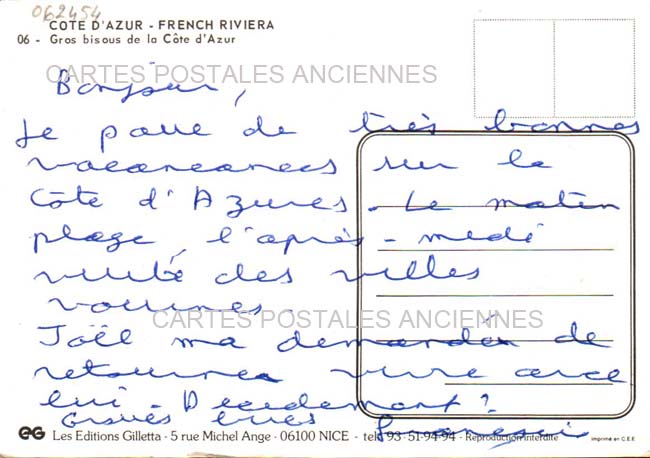 062454
COTE D'AZUR - FRENCH RIVIERA
06 - Gros bisous de la Côte d'Azur
CARTES POSTALES ANCIENNES
Bonjour,
Je passe de très bonnes
vacances sur la
Côte d'Azures. Le matin
plage, l'après-midi
visite des villes
voisines.
CARTES POSTALES ANCIENNES
Joël ma demandé de
retourner vivre avec
lui.
Grosses bises
EG Les Editions Gilletta - 5 rue Michel Ange - 06100 NICE - tél. 93-51-94-94 - Reproduction interdite
imprimé en C.E.E.